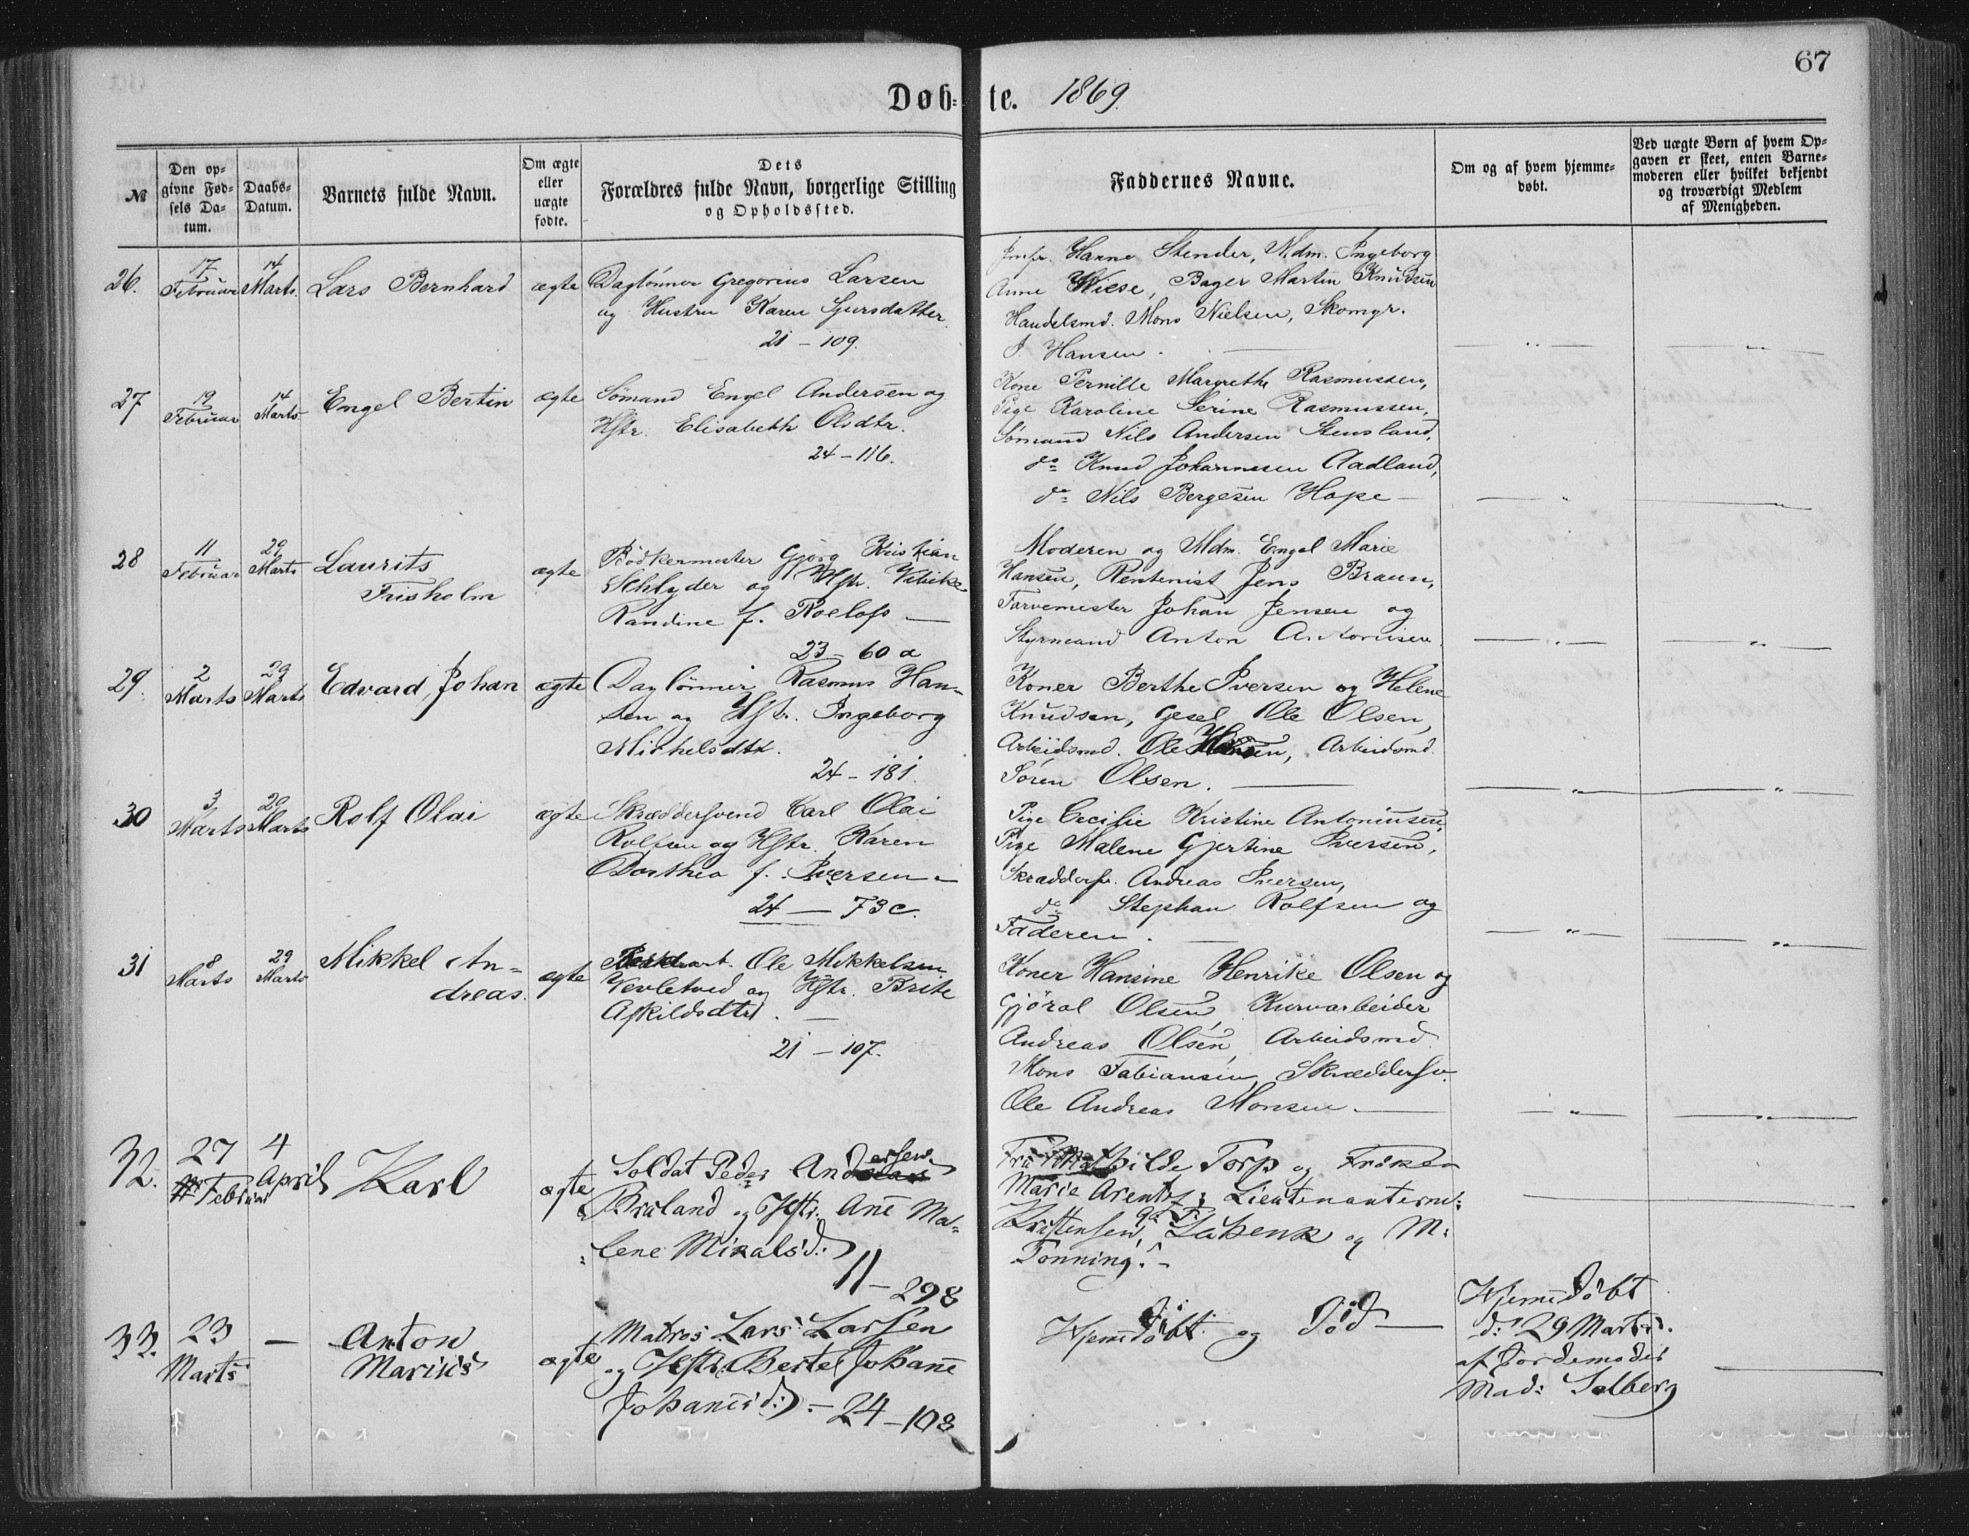 67
Døbte. 1869.
№
Den opgivne Fødsels Datum.
Daabs-Datum.
Barnets fulde Navn.
Om ægte eller uægte fødte.
Dets Forældres fulde Navn, borgerlige Stilling og Opholdssted.
Faddernes Navne.
Om og af hvem hjemmedøbt.
Ved uægte Børn af hvem Opgaven er skeet, enten Barnemoderen eller hvilket bekjendt og troværdigt Medlem af Menigheden.
26. 17 Februar 14 Marts. Lars Bernhard ægte
Daglønner Gregorius Larsen
og Hustru Karen Sjursdatter
21 – 109.
Jmfr. Hanne Stender, Mdm. Ingeborg
Anne Wiese, Bager Martin Knudsen
Handelsmd. Mons Nielsen, Skomgr.
J. Hansen.
27 19 Februar 14 Marts Engel Bertin ægte
Sømand Engel Andersen og
Hstr. Elisabeth Olsdtr.
24 – 116.
Kone Pernille Margrethe Rasmussen,
Pige Karoline Serine Rasmussen,
Sømand Nils Andersen Stensland,
do Knud Johannesen Aadland,
do Nils Bergesen Hope –
28 11 Februar 29 Marts Laurits
Frisholm ægte
Bødkermester Gjørg Kristian
Schlyder og Hstr. Vibike
Randine f. Roelofs –
23 – 60 a
Moderen og Mdm. Engel Marie
Hansen, Rentenist Jens Braun,
Farvemester Johan Jensen og
Styrmand Anton Antonisen
29. 2 Marts 29 Marts Edvard Johan ægte
Daglønner Rasmus Han-
sen og Hstr. Ingeborg
Michelsdtr.
24 – 181.
Koner Berthe Iversen og Helene
Knudsen, Gesel Ole Olsen,
Arbeidsmd. Ole Hansen, Arbeidsmd.
Søren Olsen.
30 3 Marts 29 Marts Rolf Olai ægte
Skræddersvend Carl Olai
Rolfsen og Hstr. Karen
Dorthea f. Iversen –
24 – 73 c.
Pige Cecilie Kristine Antoniusen,
Pige Malene Gjertine Iversen,
Skræddersv. Andreas Iversen,
do Stephan Rolfsen og
Faderen.
31 8 Marts 29 Marts Mikkel An-
dreas. ægte
Ole Mikkelsen
Vevletved og Hstr. Brite
Askildsdtr.
21 – 107.
Koner Hansine Henrike Olsen og
Gjørol Olsen, Kurvarbeider
Andreas Olsen, Arbeidsmd.
Mons Fabiansen, Skræddersv.
Ole Andreas Monsen.
32. 27 Februar 4 April Karl ægte
Soldat Peder Andersen
Braland og Hstr. Ane Ma-
lene Mikalsd:
11 – 298
Fru Mathilde Torp og Frøken
Marie Arentz; Lieutenanterne:
Kristensen, Lühenk og M:
Tønning. –
33. 23 Marts – Anton
Marius ægte
Matros Lars Larsen
og Hstr. Bertel Johane
Johanesd: – 24 – 108
Hjemdøbt og Død
Hjemdøbt
d: 29 Marts.
af Jordemoder
Mad: Solberg